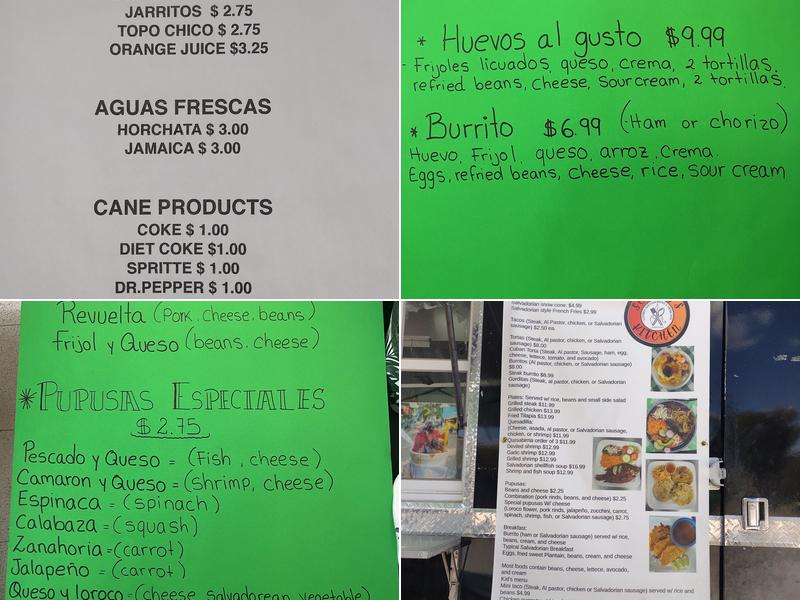 JARRITOS $ 2.75
TOPO CHICO $ 2.75
ORANGE JUICE $3.25
AGUAS FRESCAS
HORCHATA $ 3.00
JAMAICA $ 3.00
CANE PRODUCTS
COKE $ 1.00
DIET COKE $1.00
SPRITTE $ 1.00
DR.PEPPER $ 1.00
* Huevos al gusto $9.99
- Frijoles licuados, queso, Crema, 2 tortillas.
refried beans, Cheese, Sour cream, 2 tortillas.
* Burrito $6.99 (Ham or chorizo)
Huevo, Frijol, queso, arroz, Crema.
Eggs, refried beans, cheese, rice, sour cream
Revuelta (Pork. cheese. beans)
Frijol y Queso (beans. cheese)
*PUPUSAS ESPECIALES
$2.75
Pescado y Queso = (Fish, cheese)
Camaron y Queso = (shrimp, cheese)
Espinaca = (spinach)
Calabaza = (squash)
Zanahoria = (carrot)
Jalapeño = (carrot)
Queso y loroco = (cheese, salvadorean vegetable)
Salvadorian snow cone. $4.99
Salvadorian style French Fries $2.99
Tacos (Steak, Al Pastor, chicken, or Salvadorian
sausage) $2.50 ea.
Tortas (Steak, Al Pastor, chicken, or Salvadorian
sausage) $8.00
Cuban Torta (Steak, Al pastor, Sausage, ham, egg,
cheese, lettuce, tomato, and avocado)
Burritos (Al pastor, chicken, or Salvadorian sausage)
$8.00
Steak burrito $8.99
Gorditas (Steak, al pastor, chicken, or Salvadorian
sausage)
Plates: Served w/ rice, beans and small side salad
Grilled steak $11.99
Grilled chicken $13.99
Fried Tilapia $13.99
Quesadilla:
(Cheese, asada, al pastor, or Salvadorian sausage,
chicken, or shrimp) $11.99
Quesabirria order of 3 $11.99
Deviled shrimp $12.99
Garlic shrimp $12.99
Grilled shrimp $12.99
Salvadorian shellfish soup $16.99
Shrimp and fish soup $12.99
Pupusas:
Beans and cheese $2.25
Combination (pork rinds, beans, and cheese) $2.25
Special pupusas W/ cheese
(Loroco flower, pork rinds, jalapeño, zucchini, carrot,
spinach, shrimp, fish, or Salvadorian sausage) $2.75
Breakfast:
Burrito (ham or Salvadorian sausage) served w/ rice,
beans, cream, and cheese
Typical Salvadorian Breakfast
Eggs, fried sweet Plantain, beans, cream, and cheese
Most foods contain beans, cheese, lettece, avocado,
and cream
Kid's menu
Mini taco (Steak, Al Pastor, chicken, or Salvadorian sausage) served w/ rice and
beans $4.99
KITCHEN